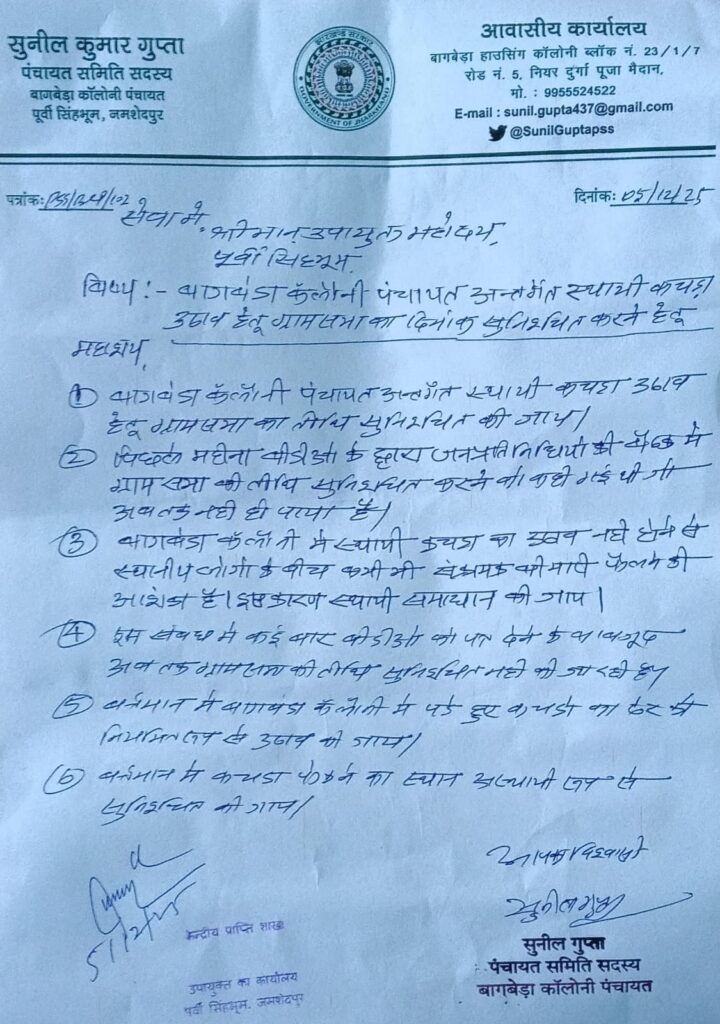 सुनील कुमार गुप्ता
पंचायत समिति सदस्य
बागबेड़ा कॉलोनी पंचायत
पूर्वी सिंहभूम, जमशेदपुर
झारखण्ड सरकार
GOVERNMENT OF JHARKHAND
आवासीय कार्यालय
बागबेड़ा हाउसिंग कॉलोनी ब्लॉक नं. 23/1/7
रोड नं. 5, नियर दुर्गा पूजा मैदान,
मो. : 9955524522
E-mail : sunil.gupta437@gmail.com
@SunilGuptapss
पत्रांकः
दिनांकः 05/12/25
सेवा में,
श्रीमान उपायुक्त महोदय,
पूर्वी सिंहभूम,
विषय :- बागबेडा कॅलोनी पंचायत अन्तर्गत स्थायी कचड़ा
उठाव हेतू ग्राम सभा का दिनांक सुनिश्चित करने हेतू
महाशय,
① बागबेडा कॅलोनी पंचायत अन्तर्गत स्थायी कचड़ा उठाव
हेतू ग्राम सभा का तीथि सुनिश्चित की जाय।
② पिछले महीना बीडीओ के द्वारा जनप्रतिनिधियो की बैठक में
ग्राम सभा की तीथि सुनिश्चित करने को कही गई थी जो
अब तक नही हो पाया है।
③ बागबेडा कॅलोनी में स्थायी कचडा का उठाव नही होने से
स्थानीय लोगो के बीच कभी भी संक्रमक बीमारी फैलने की
आशंका है। इस कारण स्थायी समाधान की जाय।
④ इस संबंध में कई बार बीडीओ को पत्र देने के बावजूद
अब तक ग्राम सभा की तीथि सुनिश्चित नही की जा रही है।
⑤ वर्तमान में बागबेडा कॅलोनी में पडे हुए कचडो का ढेर को
नियमित रूप से उठाव की जाय।
⑥ वर्तमान में कचडा फेकने का स्थान अस्थायी रूप से
सुनिश्चित की जाय।
आपका विश्वासी
सुनील गुप्ता
सुनील गुप्ता
पंचायत समिति सदस्य
बागबेड़ा कॉलोनी पंचायत
5/12/25
केन्द्रीय प्राप्ति शाखा
उपायुक्त का कार्यालय
पूर्वी सिंहभूम, जमशेदपुर